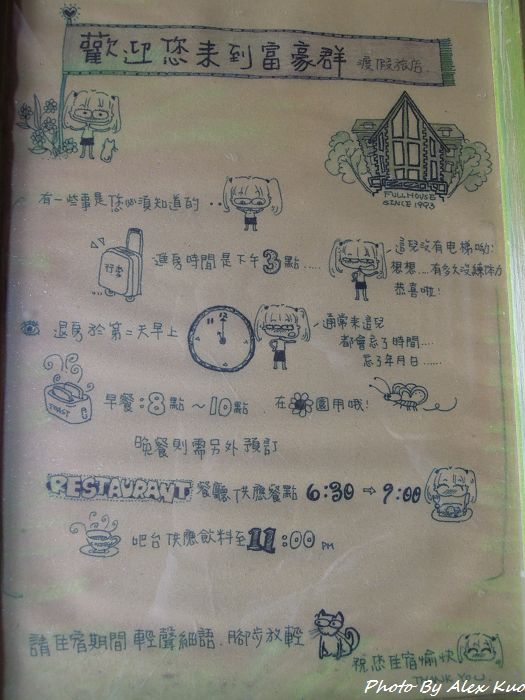 歡迎您来到富豪群 渡假旅店
FULLHOUSE
SINCE 1993
有一些事是您必須知道的..
行李
進房時間是下午3點....
這兒没有电梯呦!
想想....有多久没練体力
恭喜啦!
退房於第二天早上
11 12
通常来這兒
都會忘了時間....
忘了年月日......
TOAST
早餐:8點～10點 在園用哦!
晚餐則需另外預訂
RESTAURANT 餐廳供應餐點 6:30 ⇒ 9:00
吧台供應飲料至11:00 PM
請住宿期間輕聲細語.腳步放輕
祝您住宿愉快
THANK YOU
Photo By Alex Kuo